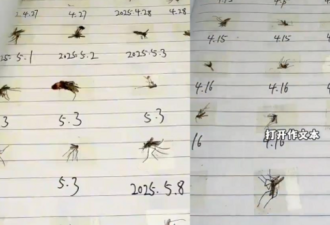 4.27 4.27 2025.4.28 4.28
2025.5.1 2025.5.2 2025.5.3
5.3 5.3 5.3
5.3 2025.5.8
4.15 4.15 4.15
4.16 4.16
16 4.16
打开作文本